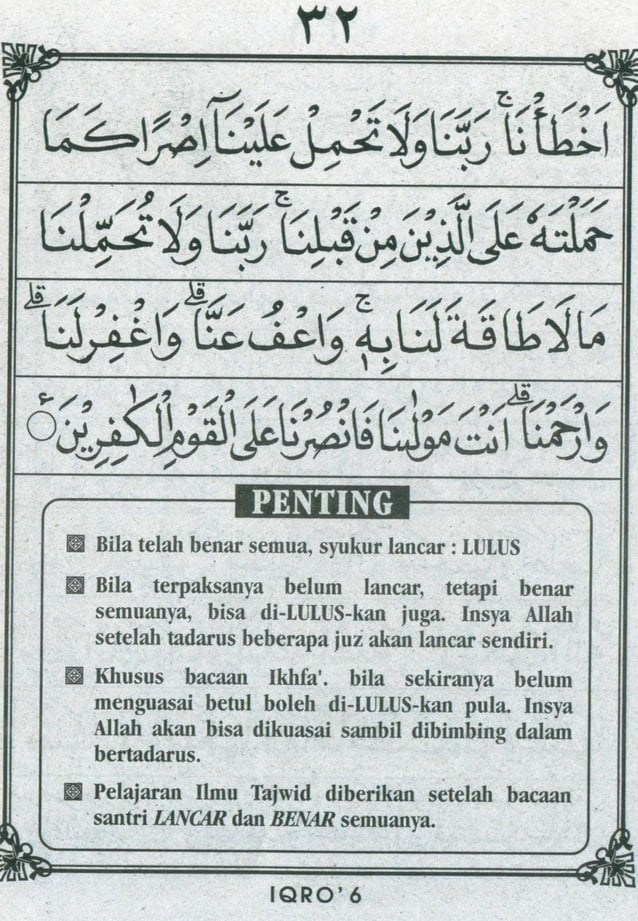 ٣٢
اَخْطَأْنَاۚ رَبَّنَا وَلَا تَحْمِلْ عَلَيْنَآ اِصْرًا كَمَا
حَمَلْتَهٗ عَلَى الَّذِيْنَ مِنْ قَبْلِنَاۚ رَبَّنَا وَلَا تُحَمِّلْنَا
مَا لَا طَاقَةَ لَنَا بِهٖۚ وَاعْفُ عَنَّاۗ وَاغْفِرْ لَنَاۗ
وَارْحَمْنَاۗ اَنْتَ مَوْلٰىنَا فَانْصُرْنَا عَلَى الْقَوْمِ الْكٰفِرِيْنَ ࣖ ○
PENTING
Bila telah benar semua, syukur lancar : LULUS
Bila terpaksanya belum lancar, tetapi benar
semuanya, bisa di-LULUS-kan juga. Insya Allah
setelah tadarus beberapa juz akan lancar sendiri.
Khusus bacaan Ikhfa'. bila sekiranya belum
menguasai betul boleh di-LULUS-kan pula. Insya
Allah akan bisa dikuasai sambil dibimbing dalam
bertadarus.
Pelajaran Ilmu Tajwid diberikan setelah bacaan
santri LANCAR dan BENAR semuanya.
IQRO' 6